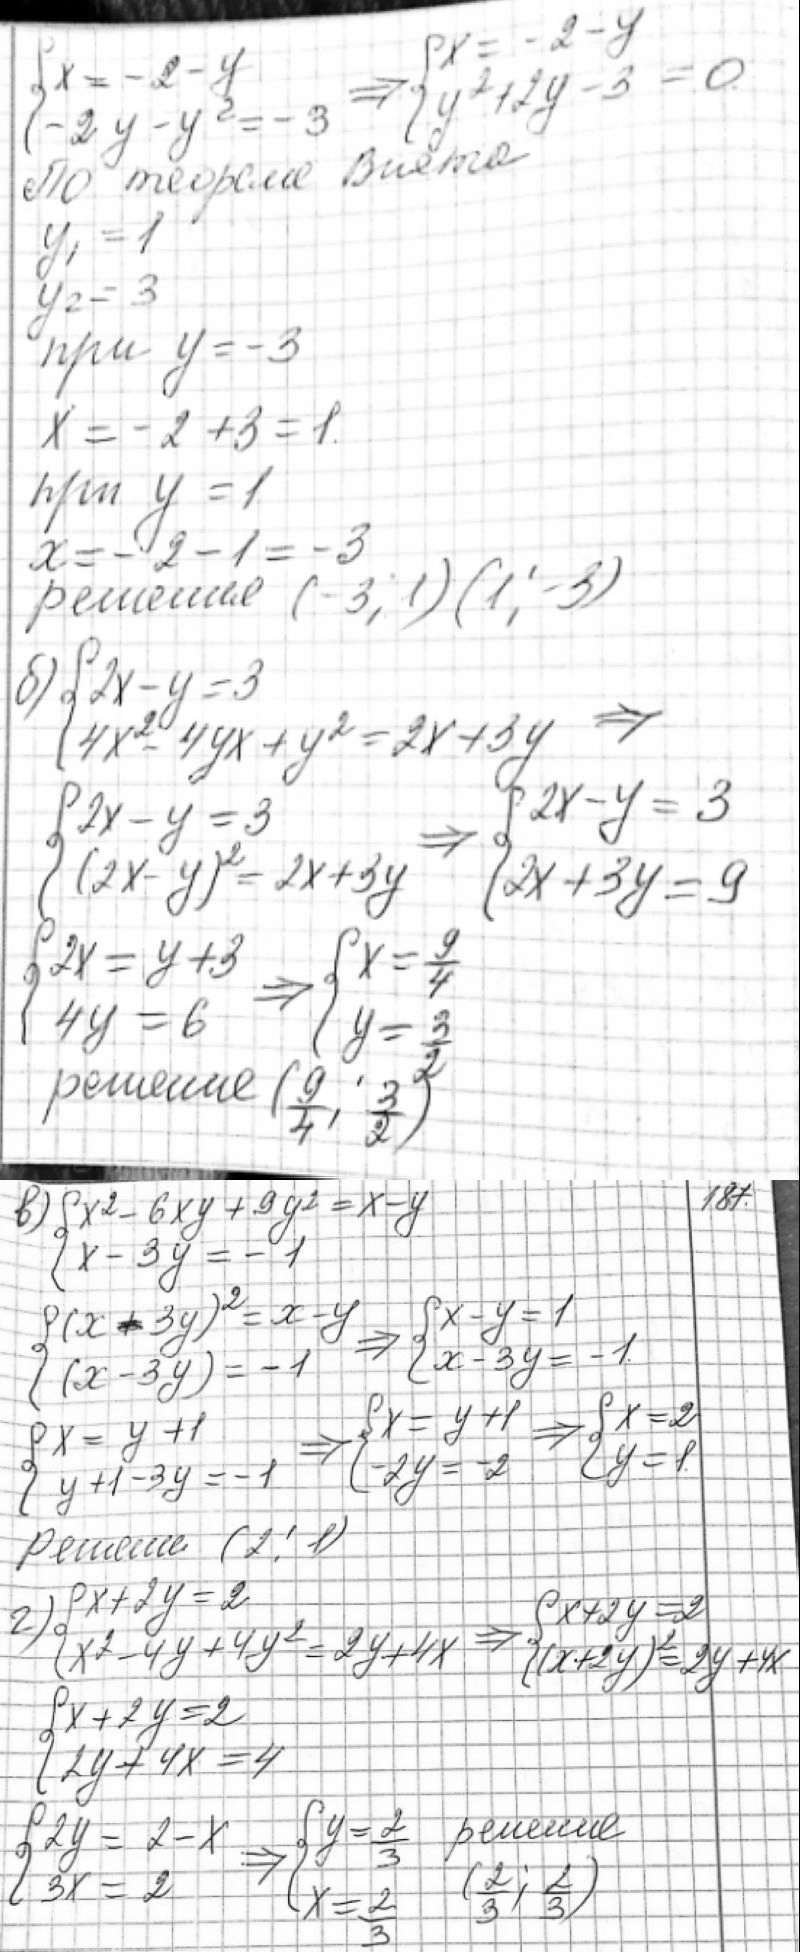 {x = -2 - y ⇒ {x = -2 - y
{-2y - y² = -3 {y² + 2y - 3 = 0
По теореме Виета
y₁ = 1
y₂ = 3
при y = -3
x = -2 + 3 = 1.
при y = 1
x = -2 - 1 = -3
решение (-3; 1) (1; -3)
б) {2x - y = 3
{4x² - 4yx + y² = 2x + 3y ⇒
{2x - y = 3 ⇒ {2x - y = 3
{(2x - y)² = 2x + 3y {2x + 3y = 9
{2x = y + 3 ⇒ {x = 9/4
{4y = 6 {y = 3/2
решение (9/4; 3/2)
в) {x² - 6xy + 9y² = x - y 187.
{x - 3y = -1
{(x - 3y)² = x - y ⇒ {x - y = 1
{(x - 3y) = -1 {x - 3y = -1.
{x = y + 1 ⇒ {x = y + 1 ⇒ {x = 2
{y + 1 - 3y = -1 {-2y = -2 {y = 1.
Решение (2; 1)
г) {x + 2y = 2 ⇒ {x + 2y = 2
{x² - 4y + 4y² = 2y + 4x {(x + 2y)² = 2y + 4x
{x + 2y = 2
{2y + 4x = 4
{2y = 2 - x ⇒ {y = 2/3 решение
{3x = 2 {x = 2/3 (2/3; 2/3)